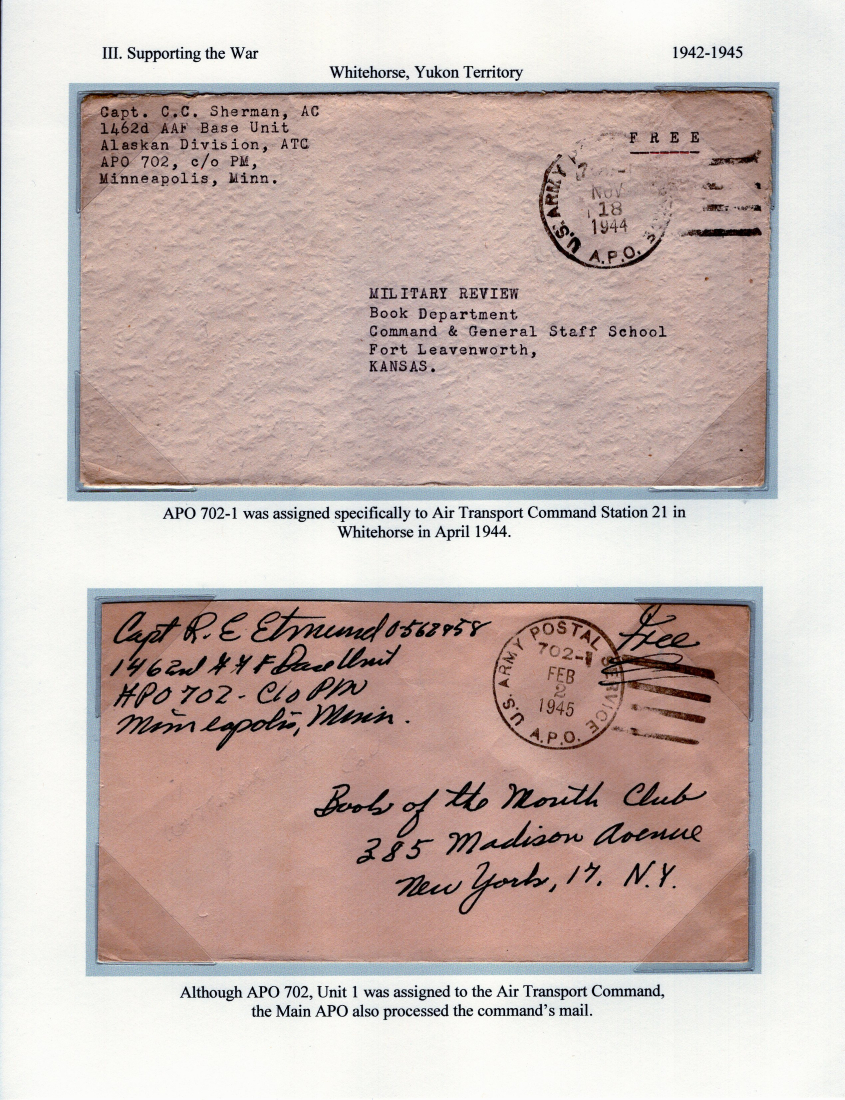 III. Supporting the War 1942-1945
Whitehorse, Yukon Territory
Capt. C.C. Sherman, AC
1462d AAF Base Unit
Alaskan Division, ATC
APO 702, c/o PM,
Minneapolis, Minn.
FREE
U.S. ARMY
NOV
18
1944
A.P.O.
MILITARY REVIEW
Book Department
Command & General Staff School
Fort Leavenworth,
KANSAS.
APO 702-1 was assigned specifically to Air Transport Command Station 21 in
Whitehorse in April 1944.
Capt R. E Etmund 0562958
1462nd AAF Base Unit
APO 702 - C/o PM
Minneapolis, Minn.
Free
U.S. ARMY POSTAL SERVICE
702-1
FEB
2
1945
A.P.O.
Book of the Month Club
385 Madison Avenue
New York, 17. N.Y.
Although APO 702, Unit 1 was assigned to the Air Transport Command,
the Main APO also processed the command's mail.